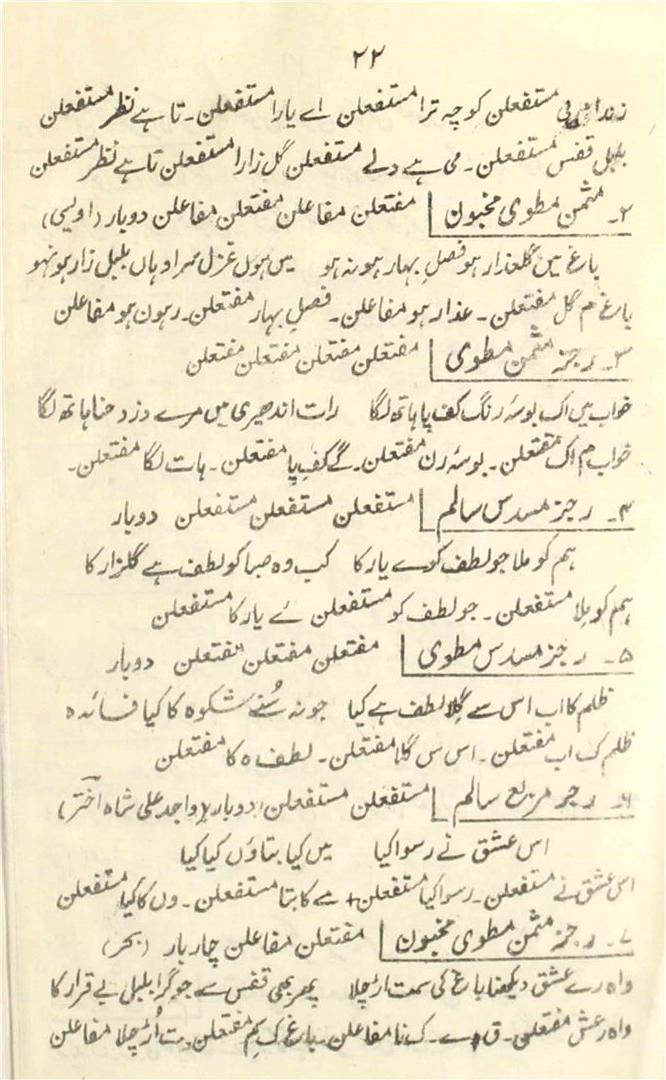 ۲۲
مستفعلن کوچہ ترا مستفعلن اے یارا مستفعلن۔ تا ہے نظر مستفعلن
بلبل قفس مستفعلن۔ می ہے دلے مستفعلن گل زارا مستفعلن تا ہے نظر مستفعلن
۲۔ مثمن مطوی مخبون مفتعلن مفاعلن مفتعلن مفاعلن دوبار (اویسی)
باغ میں گلعذار ہو فصلِ بہار ہو نہ ہو میں ہوں غزل سرا وہاں بلبل زار ہو نہو
باغ م گل مفتعلن۔ عذار ہو مفاعلن۔ فصلِ بہار مفتعلن۔ رہون ہو مفاعلن
۳۔ رجز مثمن مطوی مفتعلن مفتعلن مفتعلن مفتعلن
خواب میں اک بوسۂ رنگ کف پا ہاتھ لگا رات اندھیری میں مرے دزد حنا ہاتھ لگا
خواب م اک مفتعلن۔ بوسۂ رن مفتعلن۔ گے کفِ پا مفتعلن۔ ہات لگا مفتعلن۔
۴۔ رجز مسدس سالم مستفعلن مستفعلن مستفعلن دوبار
ہم کو ملا جو لطف کوے یار کا کب وہ صبا کو لطف ہے گلزار کا
ہم کو مِلا مستفعلن۔ جو لطف کو مستفعلن ئے یار کا مستفعلن
۵۔ رجز مسدس مطوی مفتعلن مفتعلن مفتعلن دوبار
ظلم کا اب اس سے گِلا لطف ہے کیا جو نہ سُنے شکوہ کا کیا فائدہ
ظلم ک اب مفتعلن۔ اس س گلا مفتعلن۔ لطف ہ کا مفتعلن
۶۔ رجز مربع سالم مستفعلن مستفعلن (دوبار) (واجد علی شاہ اختر)
اس عشق نے رسوا کیا میں کیا بتاؤں کیا کیا
اس عشق نے مستفعلن۔ رسوا کیا مستفعلن + مے کا بتا مستفعلن۔ وں کا کیا مستفعلن
۷۔ رجز مثمن مطوی مخبون مفتعلن مفاعلن چار بار (بحر)
واہ رے عشق دیکھنا باغ کی سمت اڑ چلا پھر بھی قفس سے جو گرا بلبل بے قرار کا
واہ ر عش مفتعلن۔ ق رے۔ ک نا مفاعلن۔ باغ ک سِم مفتعلن۔ ت اُڑ چلا مفاعلن